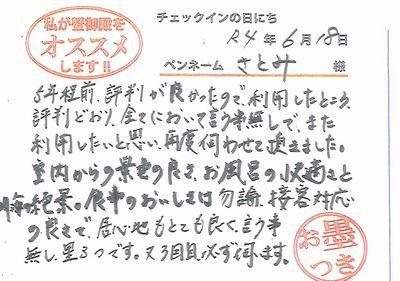 私が蟹御殿を
オススメ
します!!
チェックインの日にち
R4年6月18日
ペンネーム さとみ 様
5年程前、評判が良かったので、利用したところ、
評判どおり、全てにおいて言う事無しで、また
利用したいと思い、再度伺わせて頂きました。
室内からの景色の良さ、お風呂の快適さと
絶景。食事のおいしさは勿論、接客対応
の良さで、居心地もとても良く、言う事
無し、星3つです。又3回目、必ず伺います。
お墨
つき